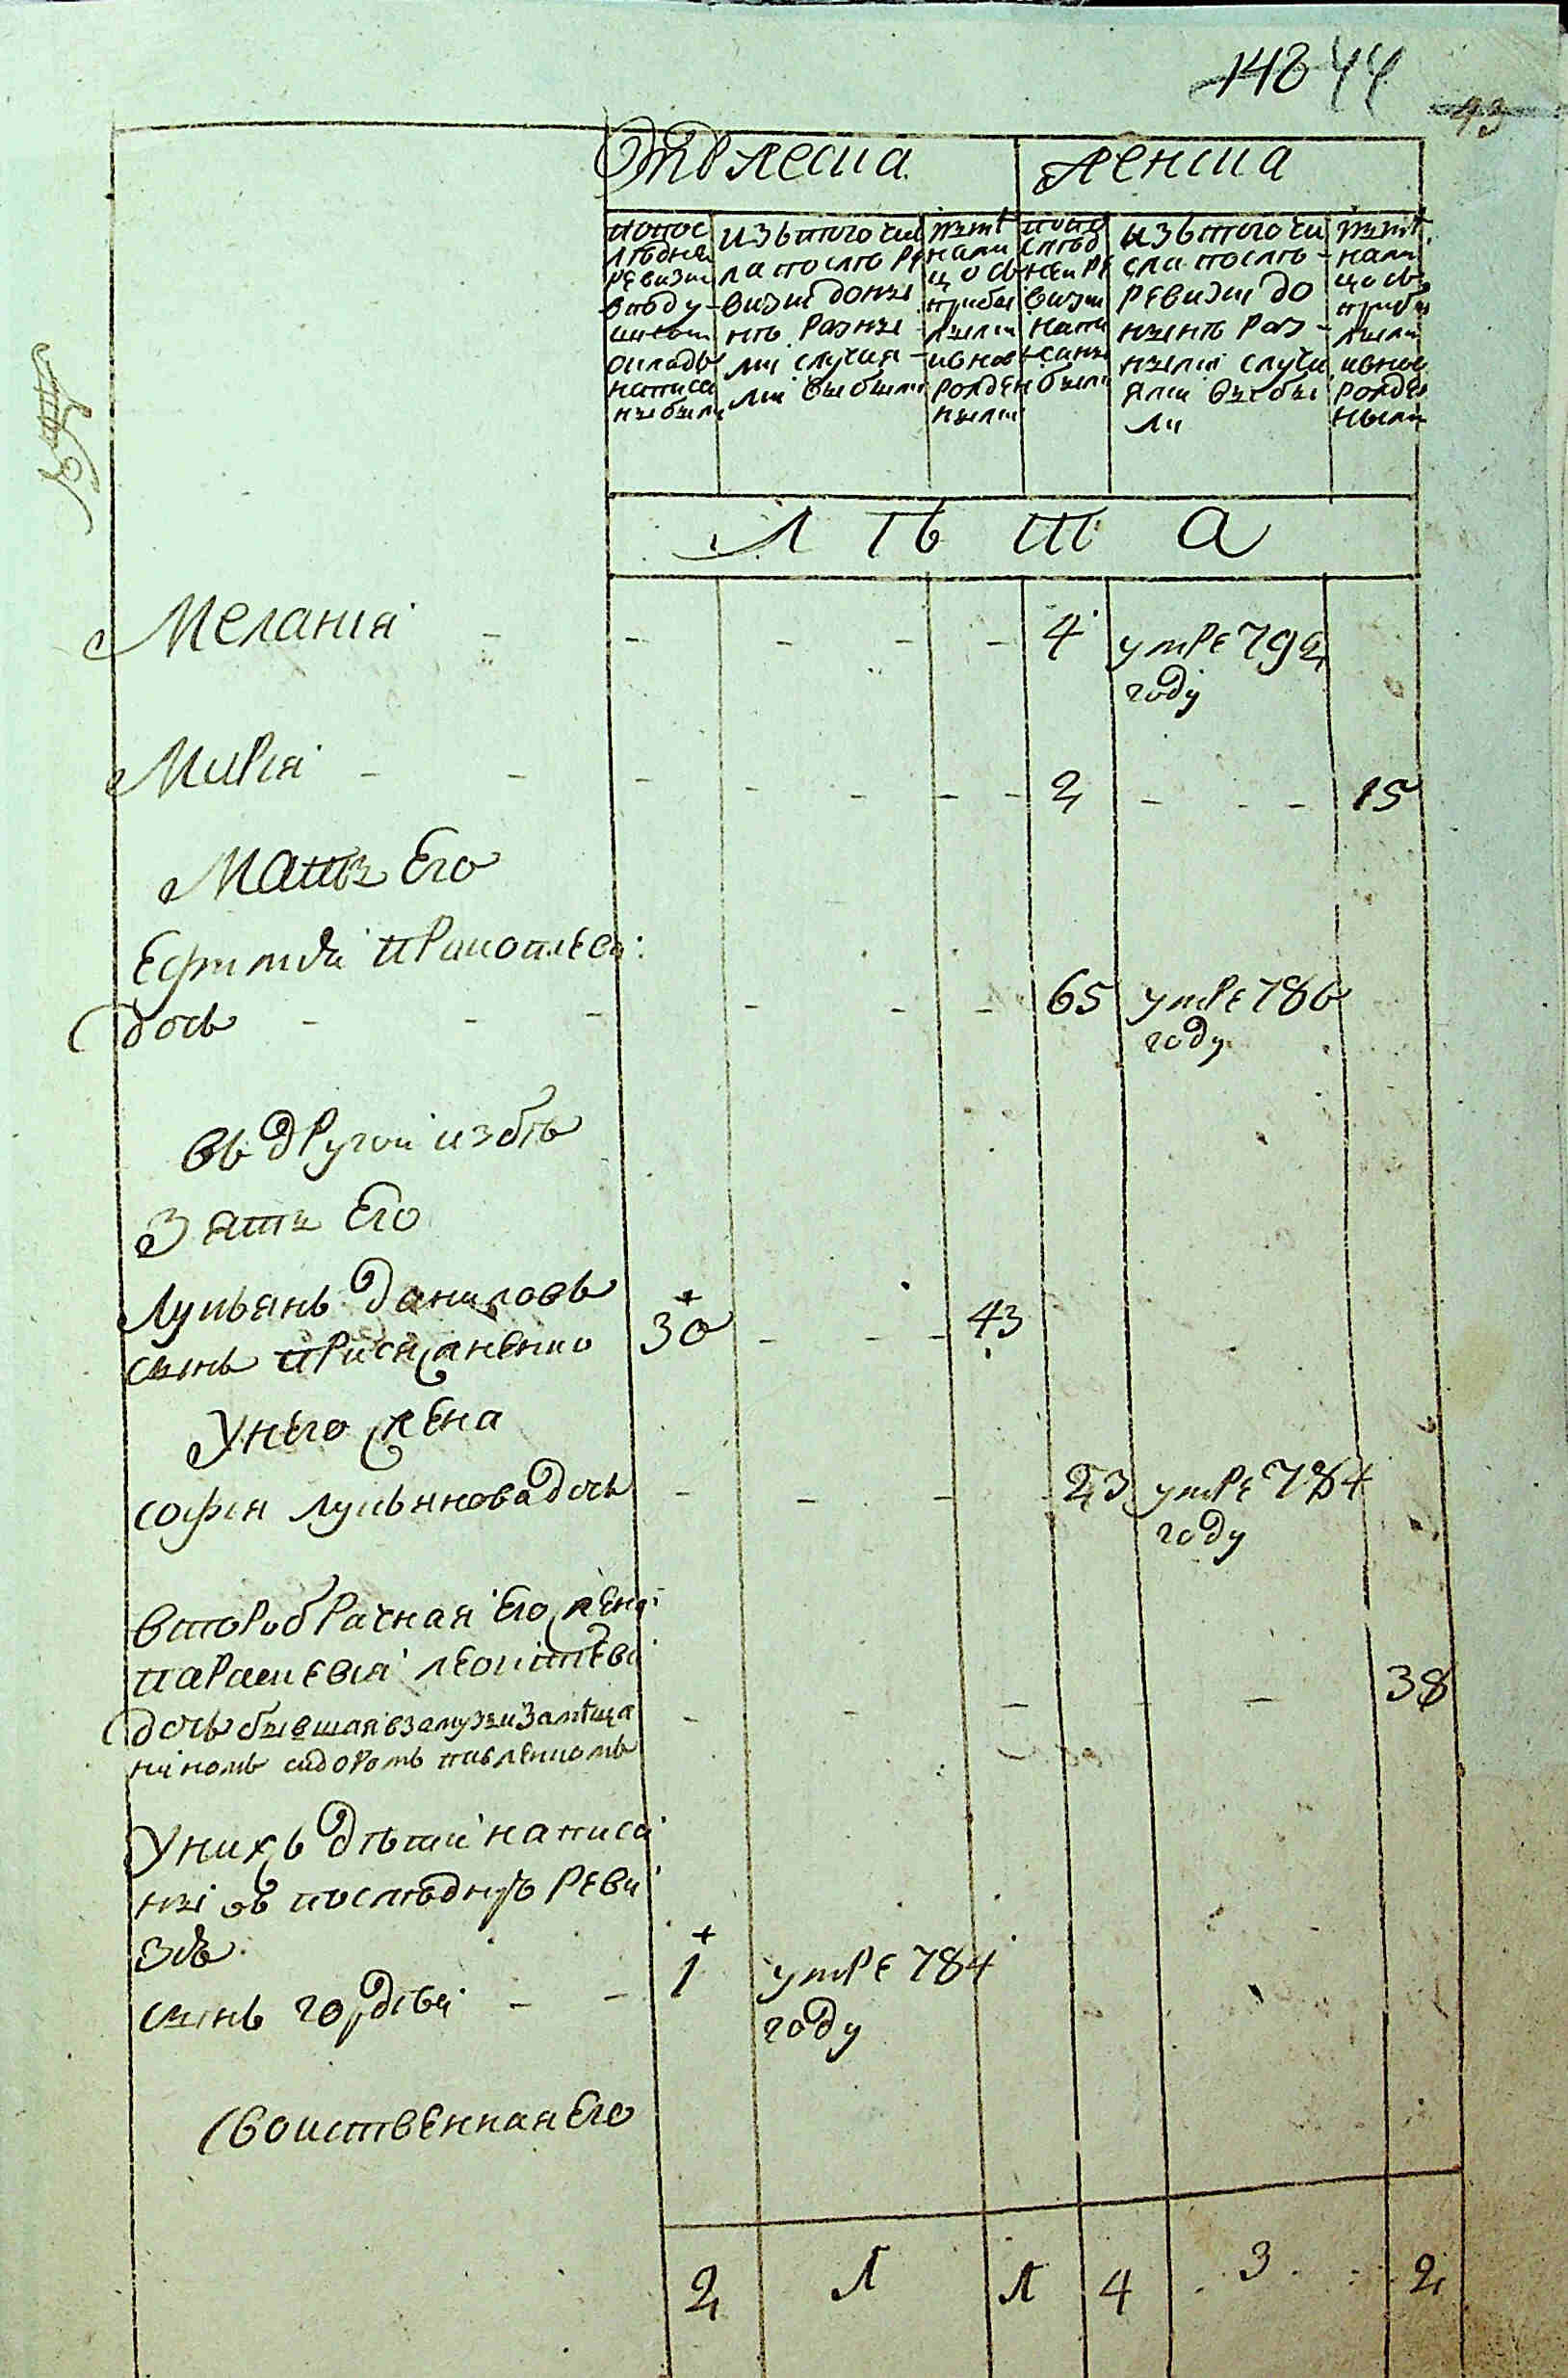 148 44
43
Мужеска
женска
попос
лѣдней
ревизіи
вподу-
шном
окладѣ
написа
ны были
изътогочис
ла послѣ ре
визіи доны
нѣ разны-
ми случая-
ми выбыли
нынѣ
нали
цо съ
прибы
лыми
ивнов
рожден
ными
попо
слѣд
ней ре
визіи
напи
саны
были
изътогочи
сла послѣ-
ревизіи до
нынѣ раз-
ными случа
ями выбы
ли
нынѣ
нали
цо съ
прибы
лыми
ивнов
рожден
ными
Л Ѣ Т А
Меланія - - - - - 4 умре 792
году
Марія - - - - - - - 2 - - - 15
Мать Его
Ефимія Прокопіева
дочь - - - - - - 65 умре 786
году
въ другой избѣ
Зять Его
Лукьянъ Даниловъ
сынъ Присяженко 30 - - - 43
Унего жена
софія лукьянова дочь - - - 23 умре 784
году
второбрачная Его жена
параскевія леонтіева
дочь бывшая взамужѣ за мѣща - - - - - 38
ниномъ сидоромъ павленкомъ
Унихъ дѣти написа
ны въ послѣднуѣ реви
зіѣ
сынъ гордѣй - - 1 умре 784
году
Своиственная Его
2 1 1 4 3 2